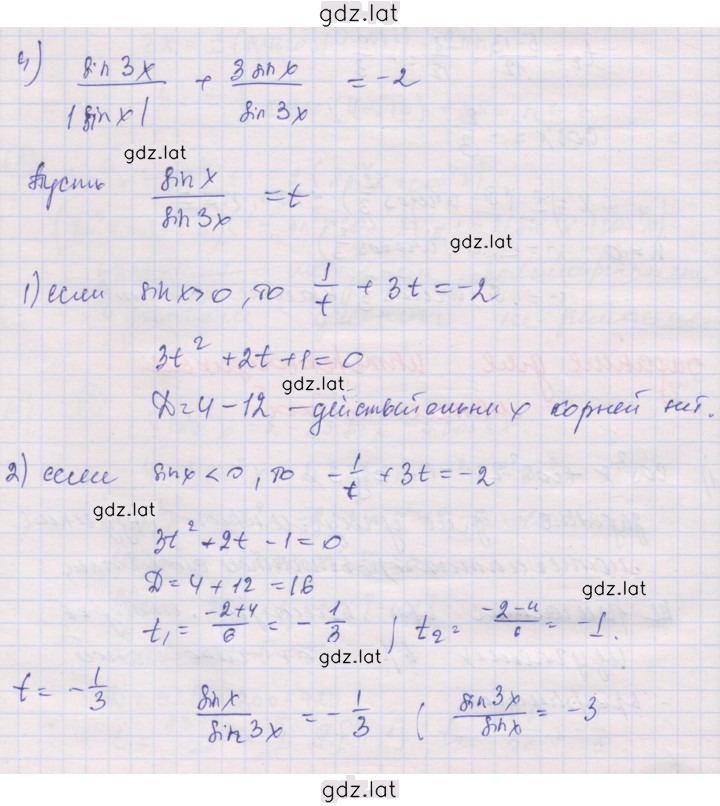 gdz.lat
4) sin3x/|sinx| + 3sinx/sin3x = -2
gdz.lat
Пусть sinx/sin3x = t
gdz.lat
1) если sinx>0, то 1/t + 3t = -2
3t² + 2t + 1 = 0
gdz.lat
D = 4 - 12 - действительных корней нет.
2) если sinx < 0, то -1/t + 3t = -2
gdz.lat
3t² + 2t - 1 = 0
D = 4 + 12 = 16
gdz.lat
t₁ = (-2+4)/6 = -1/3 ; t₂ = (-2-4)/6 = -1.
gdz.lat
t = -1/3 sinx/sin3x = -1/3 ( sin3x/sinx = -3
gdz.lat